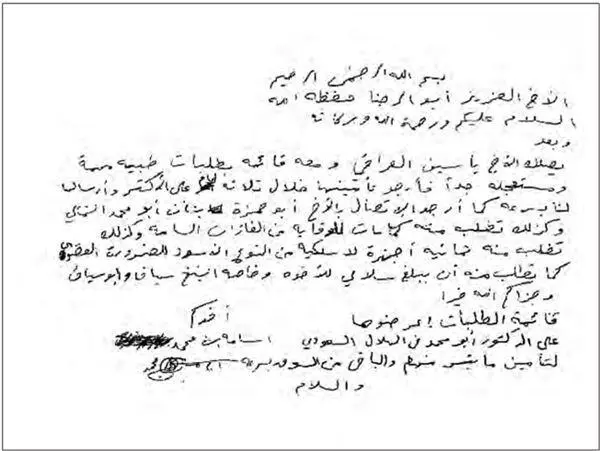 بسم الله الرحمن الرحيم
الأخ العزيز أبو الرضا حفظه الله
السلام عليكم ورحمة الله وبركاته
وبعد
يصلك الأخ ياسين العراقي ومعه قائمة بطلبات طبيه مهمة
ومستعجله جداً فأرجو تأمينها خلال ثلاثة على الأكثر وأرسالها
لنا بسرعه كما أرجو الاتصال بالأخ أبو حمزة أبو محمد
وكذلك تطلب منه كمامات للوقاية من الغازات السامة وكذلك
تطلب منه ثمانيه أجهزة لاسلكية من النوع الأسود للضرورة القصوى
كما تطلب منه أن يبلغ سلامي للأخوه وخاصة الشيخ سياف وأبو سياف
وجزاكم الله خيرا
قائمة الطلبات إعرضوها أخوكم
على الدكتور أبو محمد في الهلال السعودي اسامه بن محمد
لتأمين ما تيسر منهم والباقي من السوق بسرعه
والسلام